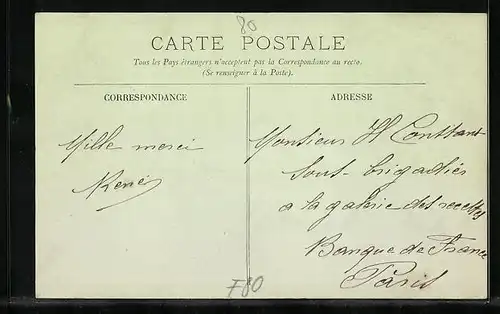 80
CARTE POSTALE
Tous les Pays étrangers n'acceptent pas la Correspondance au recto.
(Se renseigner à la Poste).
CORRESPONDANCE
Mille merci
René
ADRESSE
Monsieur H Constant
Sous-brigadier
a la galerie des recettes
Banque de France
Paris
F80